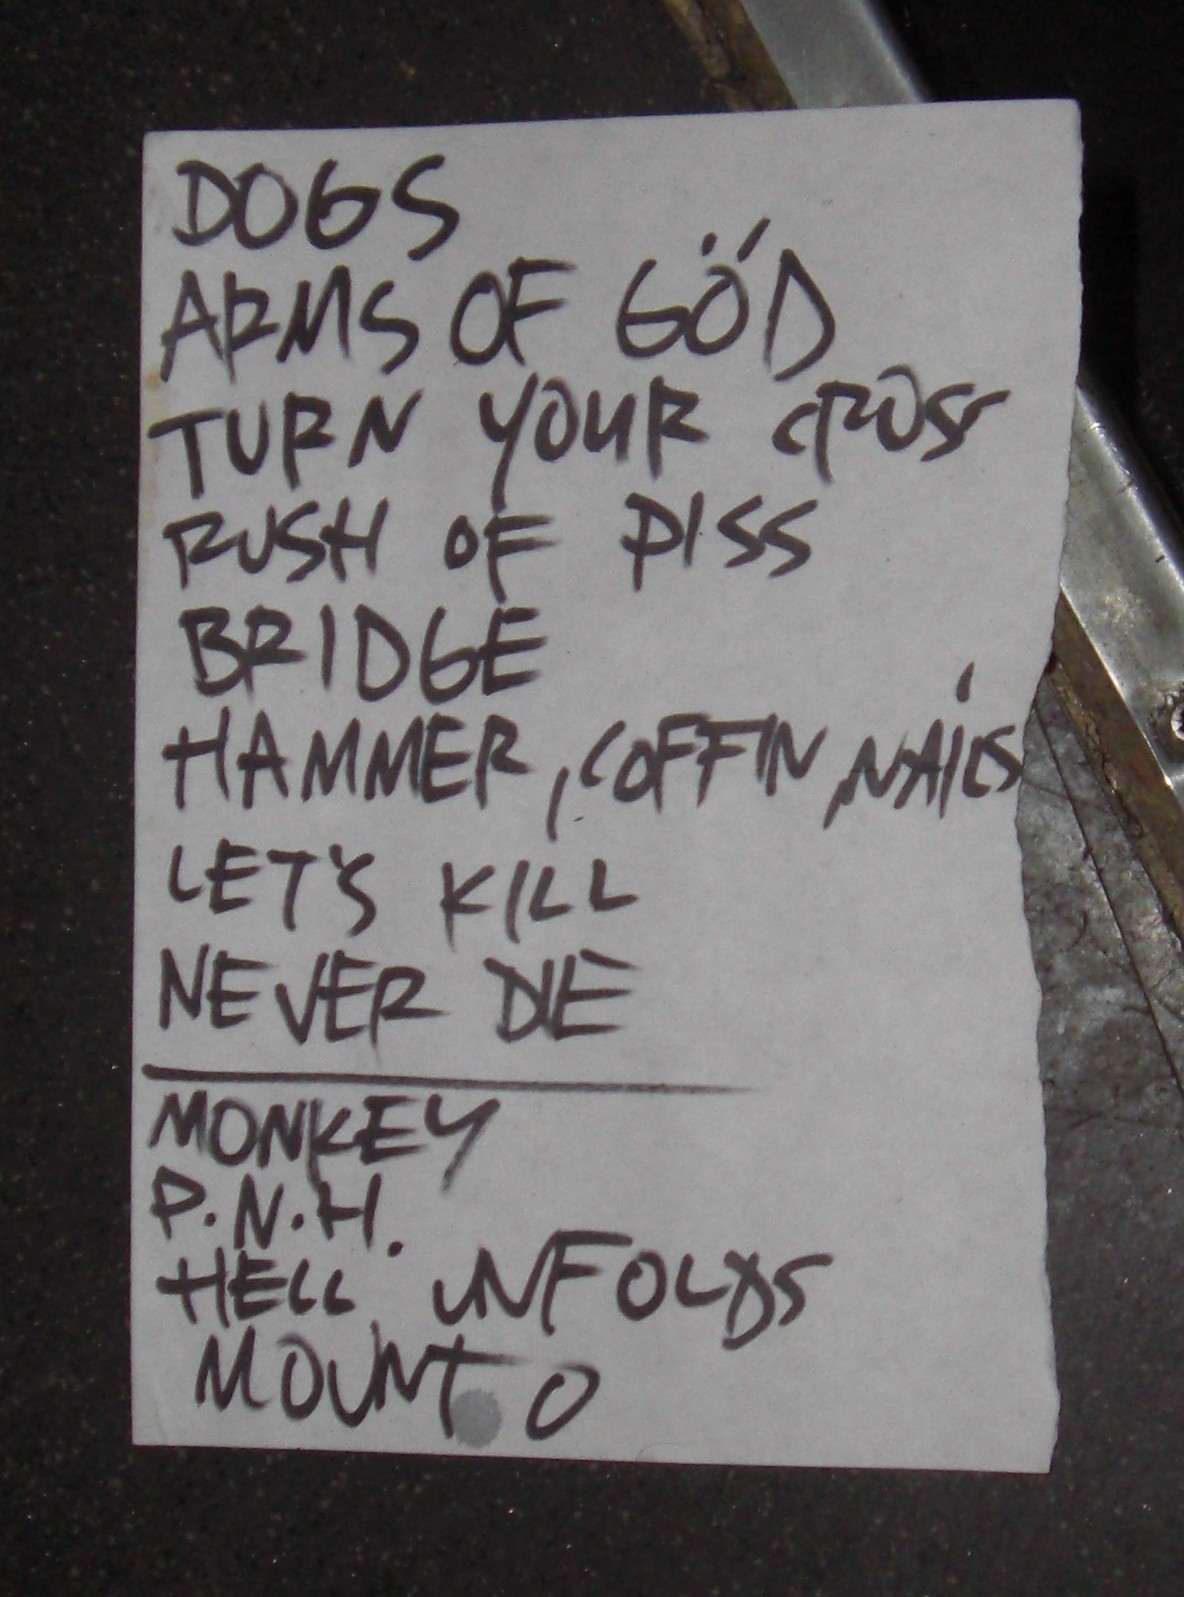 DOGS
ARMS OF GÖD
TURN YOUR CROSS
RUSH OF PISS
BRIDGE
HAMMER, COFFIN, NAILS
LET'S KILL
NEVER DIE
MONKEY
P.N.H.
HELL UNFOLDS
MOUNT O